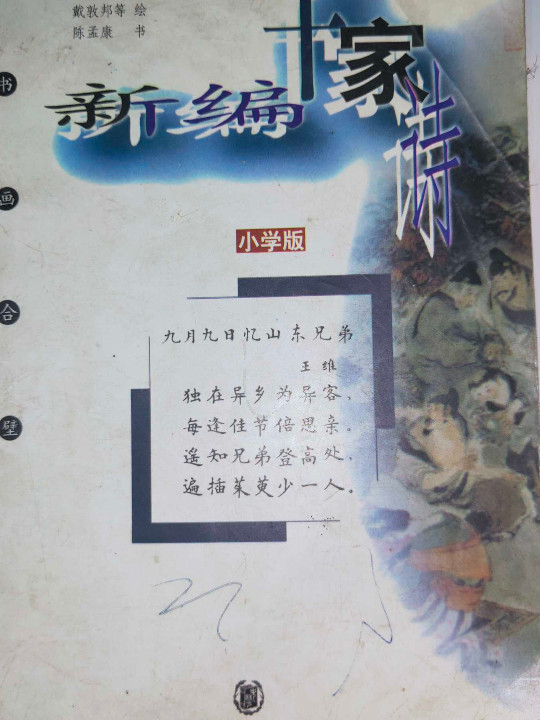 戴敦邦等 绘
陈孟康 书
新编
千家诗
书画合璧
小学版
九月九日忆山东兄弟
王维
独在异乡为异客，
每逢佳节倍思亲。
遥知兄弟登高处，
遍插茱萸少一人。